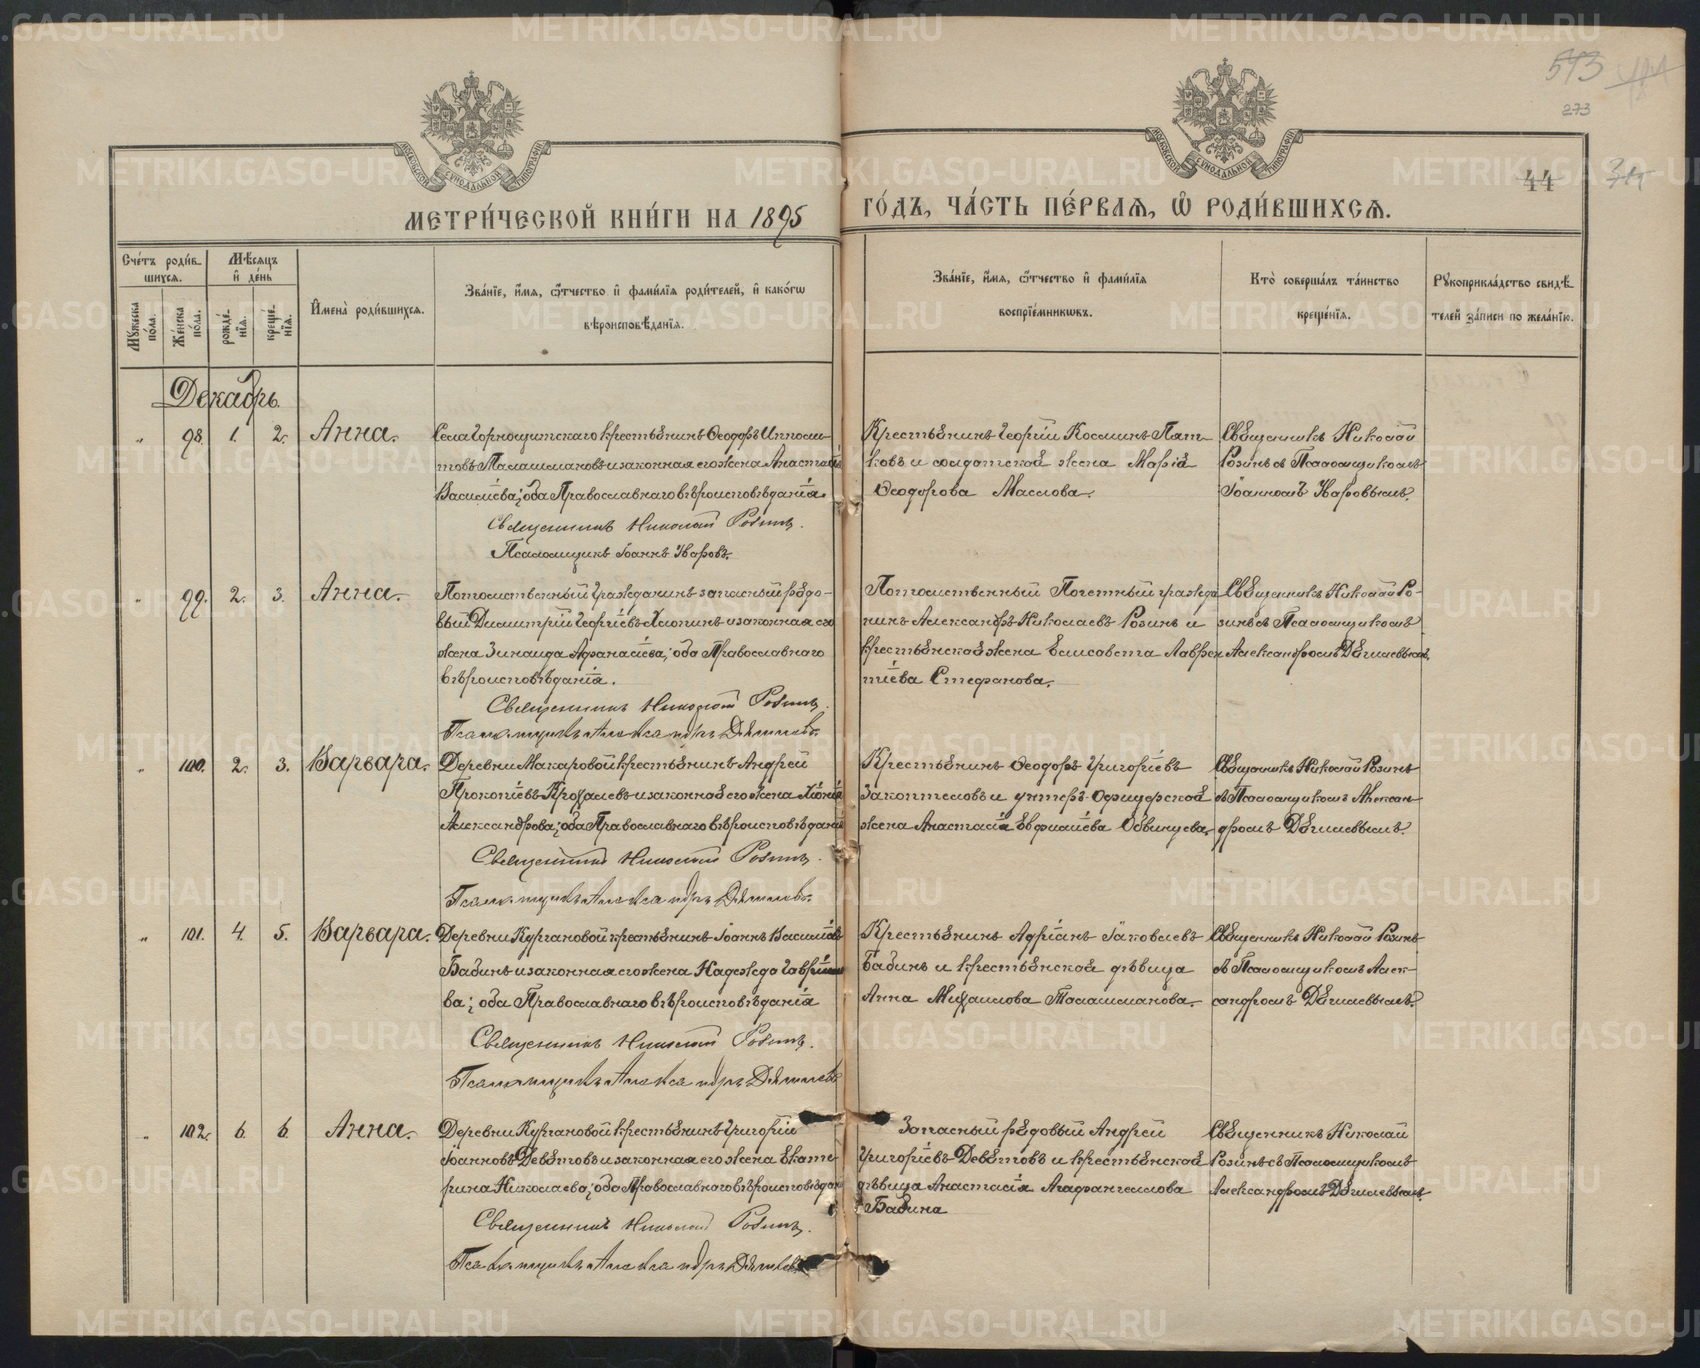 573
273
44
МОСКОВСКОЙ СѴНОДАЛЬНОЙ ТИПОГРАФІИ
МОСКОВСКОЙ СѴНОДАЛЬНОЙ ТИПОГРАФІИ
МЕТРИ́ЧЕСКОЙ КНИ́ГИ НА 1895 ГО́ДЪ, ЧА́СТЬ ПЕ́РВАѦ, Ѡ РОДИ́ВШИХСѦ.
Счетъ роди́вшихсѧ.
Мꙋжеска пола.
Же́нска по́ла.
Мѣсѧцъ и҆ де́нь
рожде́нїѧ.
креще́нїѧ.
И҆мена̀ роди́вшихсѧ.
Зва́нїе, и҆́мѧ, ѻ҆́тчество и҆ фами́лїѧ роди́телей, и҆ како́гѡ
вѣроисповѣ́данїѧ.
Зва́нїе, и҆́мѧ, ѻ҆́тчество и҆ фами́лїѧ
воспрїе́мникѡвъ.
Кто̀ соверша́лъ та́инство
креще́нїѧ.
Рꙋкоприкла́дство свидѣ́телей за́писи по жела́нїю.
Декабрь.
„ 98. 1. 2. Анна.
Села Горнощитскаго крестьянинъ Ѳеодоръ Ипполи-
товъ Талашмановъ и законная его жена Анастасія
Васильева; оба Православнаго вѣроисповѣданія.
Священникъ Николай Розинъ.
Псаломщикъ Іоаннъ Уваровъ.
Крестьянинъ Георгій Косминъ Пат-
ковъ и солдатская жена Марія
Ѳеодорова Маслова.
Священникъ Николай
Розинъ съ Псаломщикомъ
Іоанномъ Уваровымъ.
„ 99. 2. 3. Анна.
Потомственный гражданинъ запасный рядо-
вый Димитрій Георгіевъ Хлопинъ и законная его
жена Зинаида Аѳанасіева; оба Православнаго
вѣроисповѣданія.
Священникъ Николай Розинъ.
Псаломщикъ Александръ Дягилевъ.
Потомственный Почетный гражда-
нинъ Александръ Николаевъ Розинъ и
крестьянская жена Елисавета Лаврен-
тіева Стефанова.
Священникъ Николай Ро-
зинъ съ Псаломщикомъ
Александромъ Дягилевымъ.
„ 100. 2. 3. Варвара.
Деревни Макаровой крестьянинъ Андрей
Прокопіевъ и законная его жена Хіонія
Александрова; оба Православнаго вѣроисповѣданія
Священникъ Николай Розинъ.
Псаломщикъ Александръ Дягилевъ.
Крестьянинъ Ѳеодоръ Григоріевъ
Закоптеловъ и унтеръ-офицерская
жена Анастасія Евфиміева Обвинцева.
Священникъ Николай Розинъ
съ Псаломщикомъ Алексан-
дромъ Дягилевымъ.
„ 101. 4. 5. Варвара.
Деревни Кургановой крестьянинъ Іоаннъ Васильевъ
Бабинъ и законная его жена Надежда Гавріило-
ва; оба Православнаго вѣроисповѣданія
Священникъ Николай Розинъ.
Псаломщикъ Александръ Дягилевъ
Крестьянинъ Адріанъ Іаковлевъ
Бабинъ и крестьянская дѣвица
Анна Михаилова Талашманова.
Священникъ Николай Розинъ
съ Псаломщикомъ Алек-
сандромъ Дягилевымъ.
„ 102. 6. 6. Анна.
Деревни Кургановой крестьянинъ Григорій
Іоанновъ Девятовъ и законная его жена Екате-
рина Николаева; оба Православнаго вѣроисповѣдан
Священникъ Николай Розинъ.
Псаломщикъ Александръ Дягилевъ
Запасный рядовый Андрей
Григоріевъ Девятовъ и крестьянская
дѣвица Анастасія Агафангелова
Бабина
Священникъ Николай
Розинъ съ Псаломщикомъ
Александромъ Дягилевымъ.
METRIKI.GASO-URAL.RU